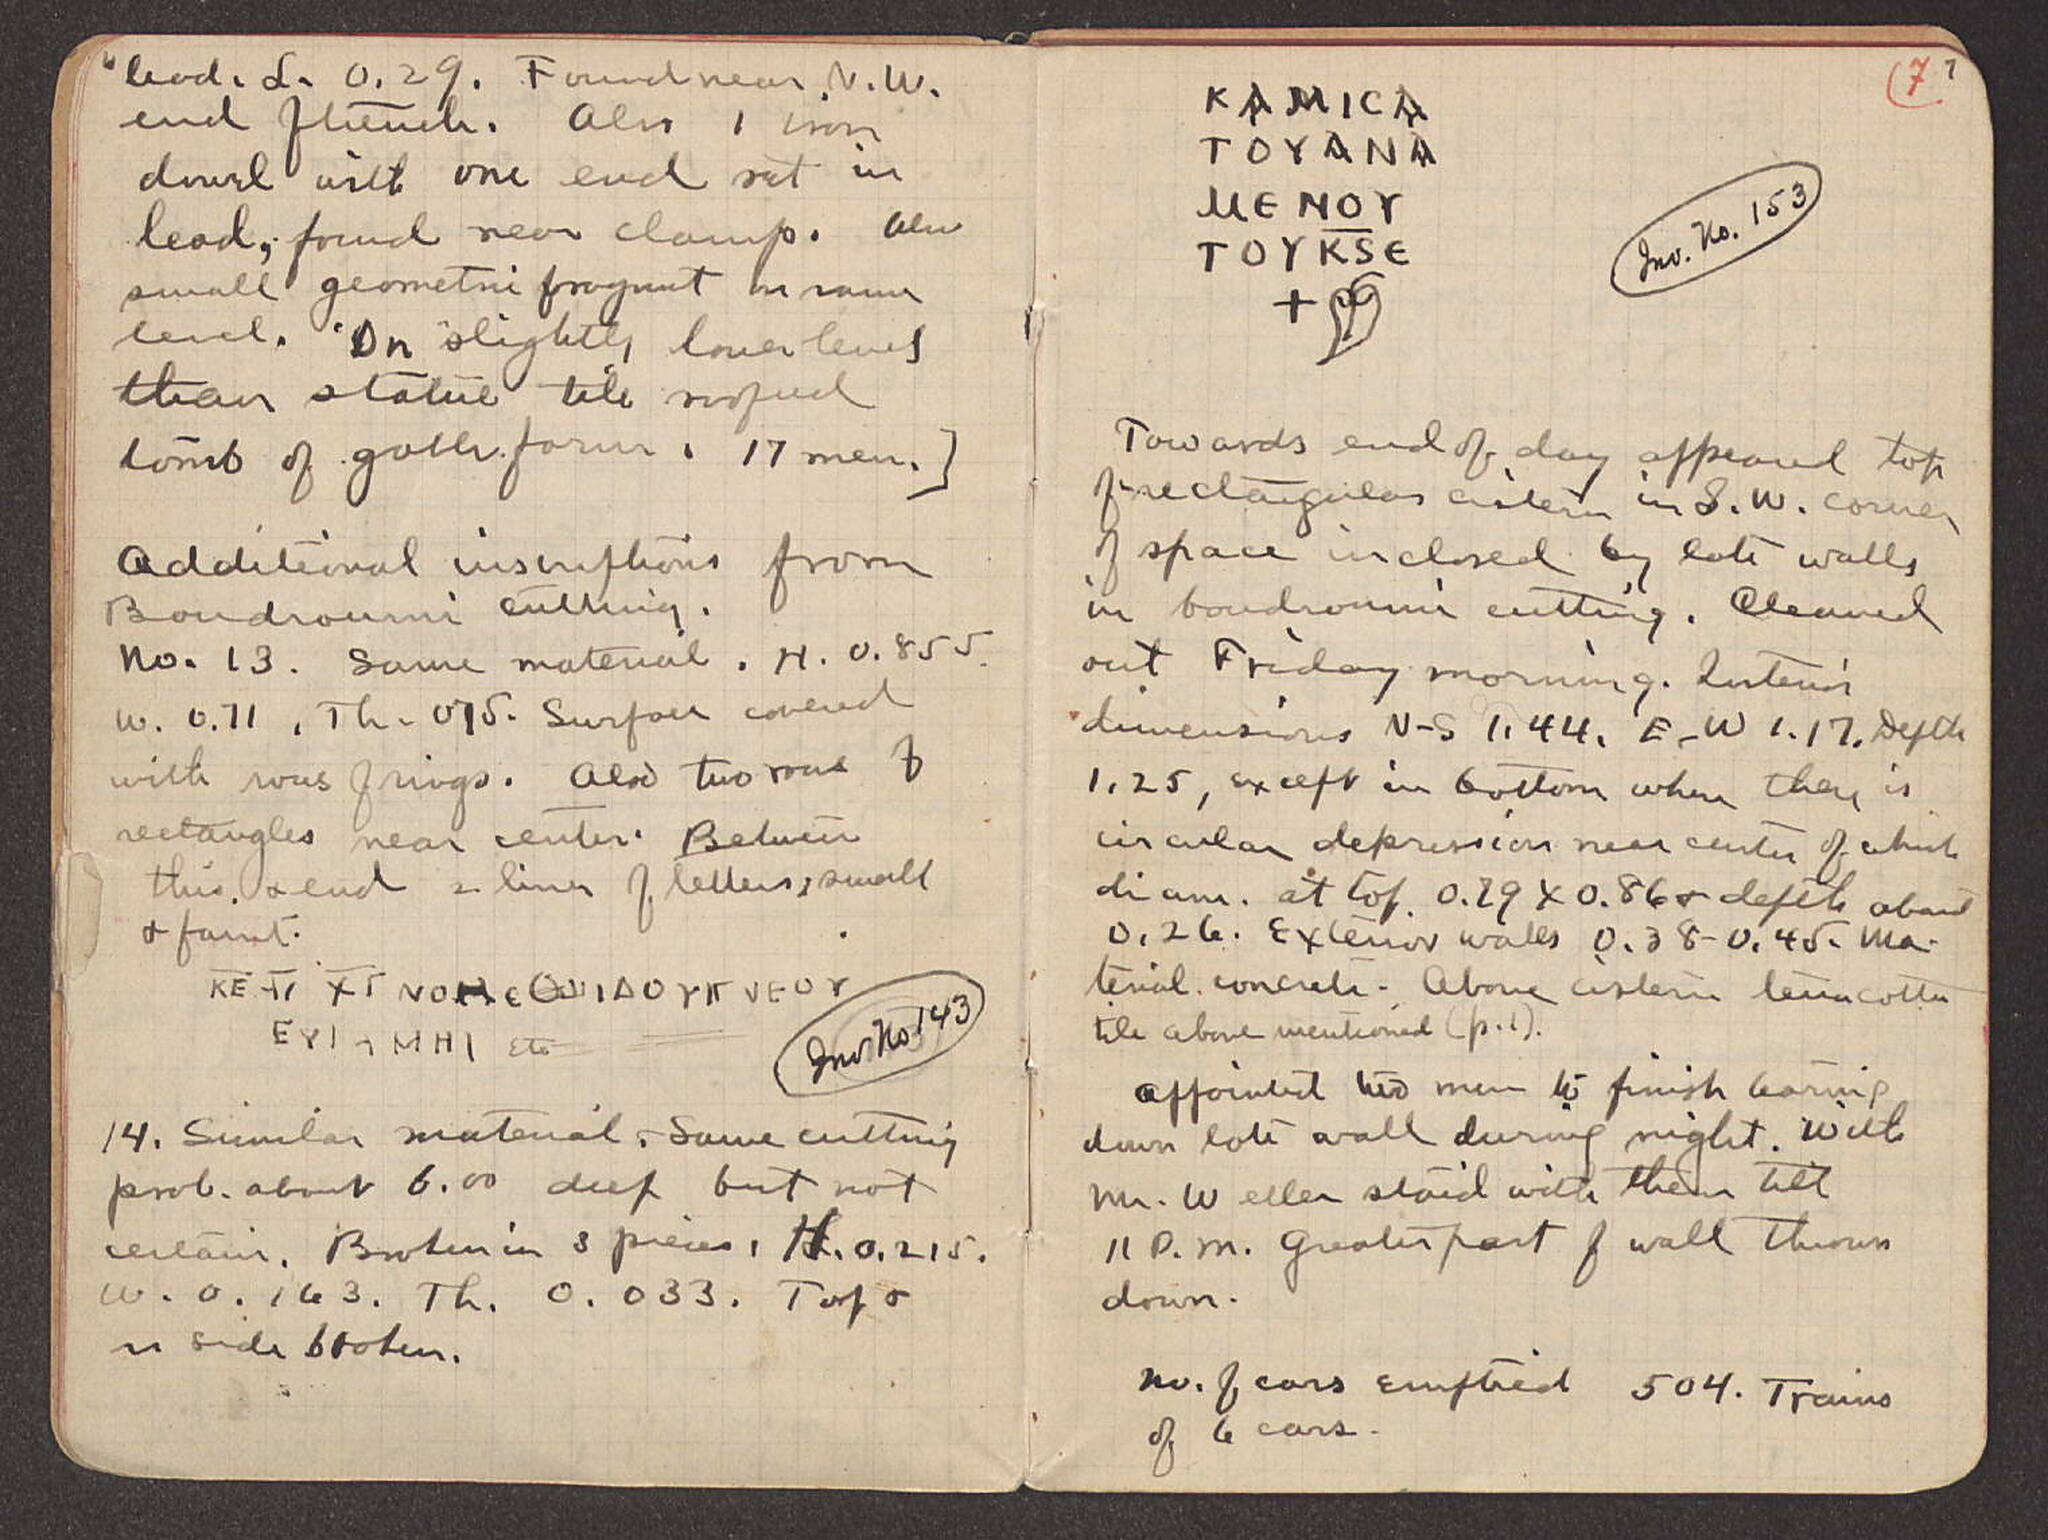 lead. L. 0.29. Found near N.W.
end of trench. Also 1 iron
dowel with one end set in
lead, found near clamp. Also
small geometric fragment in same
level. On slightly lower level
than statue tile roofed
tomb of gable form. 17 men.]
Additional inscriptions from
Boudroumi cutting.
No. 13. Same material. H. 0.855.
W. 0.71, Th. 075. Surface covered
with rows of rings. Also two rows of
rectangles near center. Between
this & end 2 lines of letters, small
& faint.
etc
Inv No. 143
14. Similar material. Same cutting
prob. about 6.00 deep but not
certain. Broken in 3 pieces, H. 0.215.
W. 0.163. Th. 0.033. Top &
side broken.
(7
7
ΚΑΜΙCΑ
ΤΟΥΑΝΑ
ΜΕΝΟΥ
ΤΟΥΚSΕ
+
Inv. No. 153
Towards end of day appeared top
of rectangular cistern in S.W. corner
of space inclosed by late walls
in boudroumi cutting. Cleaned
out Friday morning. Interior
dimensions N-S 1.44. E-W 1.17. Depth
1.25, except in bottom where there is
circular depression near center of which
diam. at top 0.79 x 0.86 & depth about
0.26. Exterior walls 0.38-0.45. Ma-
terial concrete. Above cistern terracotta
tile above mentioned (p.1).
Appointed two men to finish tearing
down late wall during night. With
Mr. Weller staid with them till
11 P.M. Greater part of wall thrown
down.
No. of cars emptied 504. Trains
of 6 cars.